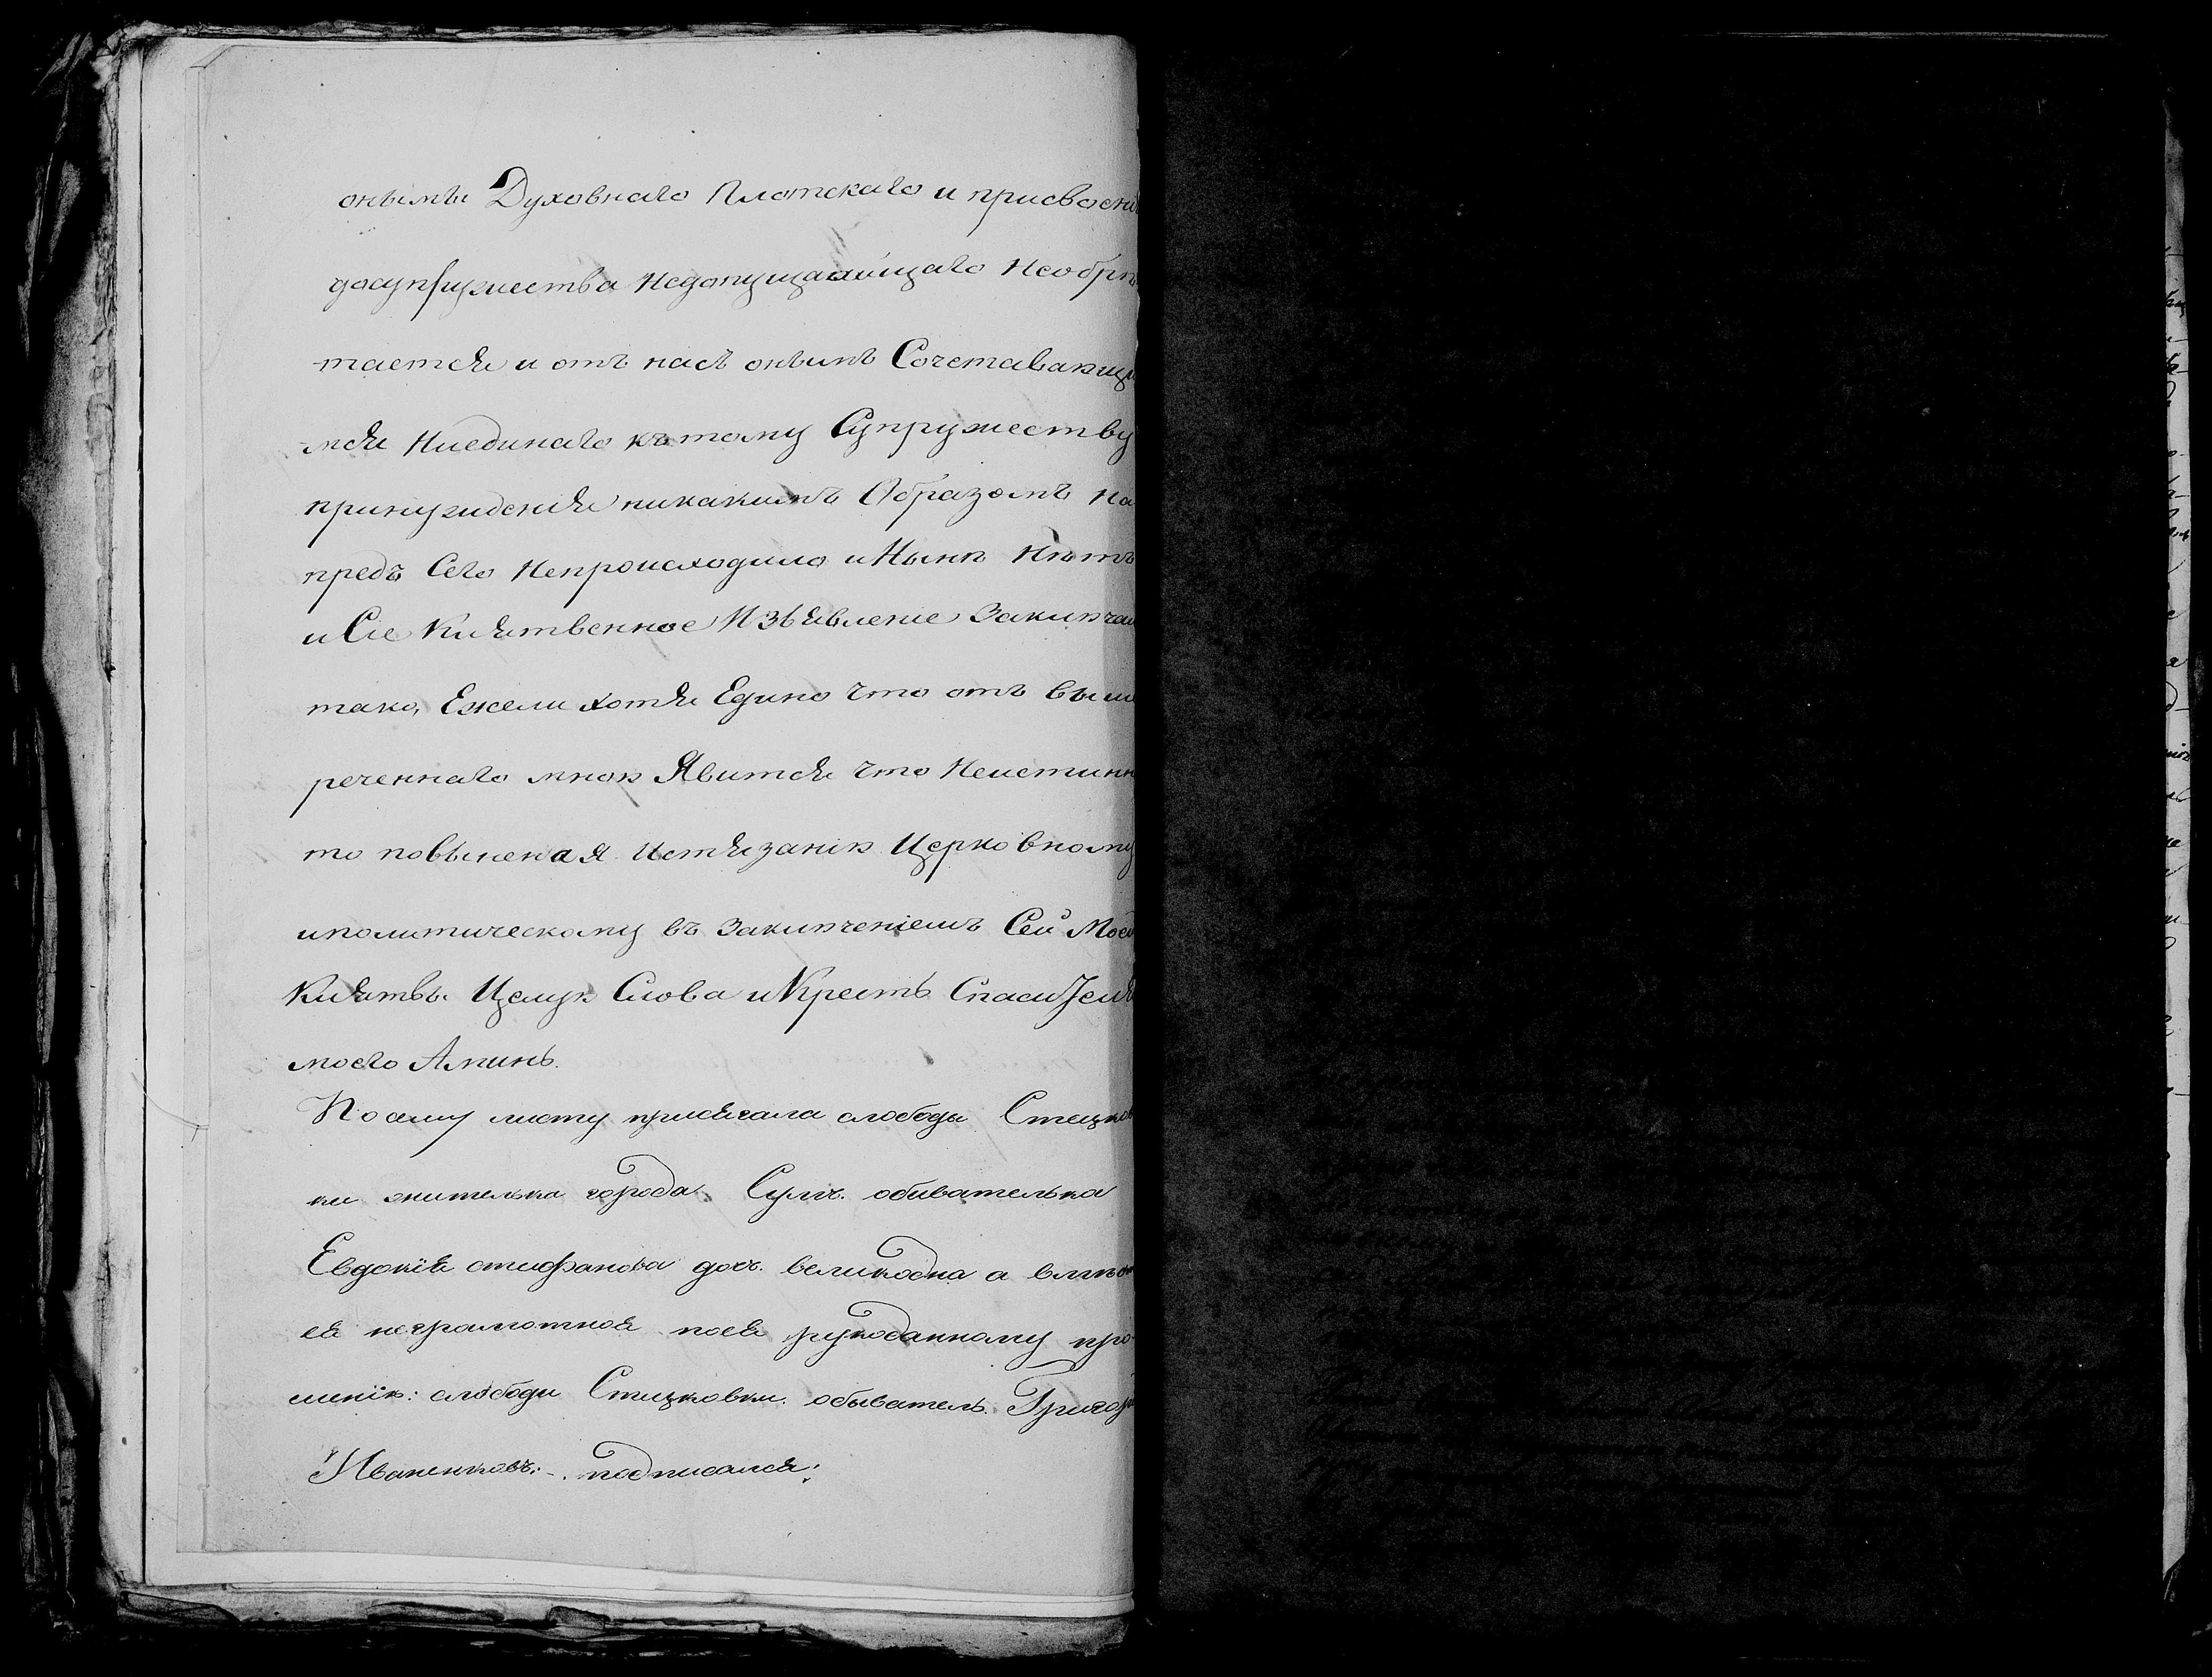 онымъ Духовнаго Плотскаго и присвоені
досупружества недопущающаго необрѣ
таетсѧ и отъ насъ онымъ Сочетавающи
мсѧ ниединаго къ тому Супружеству
принужденіѧ никакимъ Образомъ на
предъ Сего непроисходило и Нынѣ нѣтъ
и Сіе Клѧтвенное Изъѧвленіе Заключаю
тако, Ежели хотѧ Едино что отъ выше
реченнаго мною Явитсѧ что Неистинн
то повынена Я Истѧзанію Церковному
и политическому въ заключеніемъ Сей Моей
Клѧтвы Целую Слова и Крестъ Спасителѧ
моего Аминь.
По сему листу присѧгала слободы Стецков
ки жителька города Сумъ. обивателька
Евдокіѧ стифанова доч. великодна а вмѣсто
еѧ неграмотной поеѧ рукоданному про
шенію: слободи Стецковки. обыватель. Григор
Иваненковъ:-. подписалсѧ: